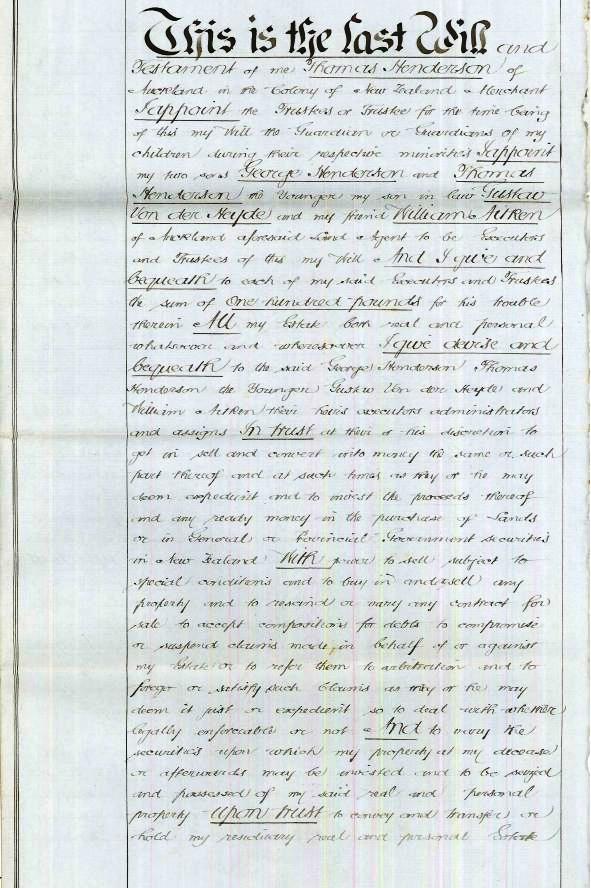 This is the last Will and
Testament of me Thomas Henderson of
Auckland in the Colony of New Zealand Merchant
I appoint the Trustees or Trustee for the time being
of this my Will the Guardian or Guardians of my
children during their respective minorities I appoint
my two sons George Henderson and Thomas
Henderson the Younger my son in law Gustav
Von der Heyde and my friend William Aitken
of Auckland aforesaid Land Agent to be Executors
and Trustees of this my Will And I give and
bequeath to each of my said Executors and Trustees
the sum of One hundred pounds for his trouble
therein All my Estate both real and personal
whatsoever and wheresoever I give devise and
bequeath to the said George Henderson Thomas
Henderson the Younger Gustav Von der Heyde and
William Aitken their heirs executors administrators
and assigns In trust at their or his discretion to
get in sell and convert into money the same or such
part thereof and at such times as they or he may
deem expedient and to invest the proceeds thereof
and any ready money in the purchase of Lands
or in General or Provincial Government securities
in New Zealand With power to sell subject to
special conditions and to buy in and resell any
property and to rescind or vary any contract for
sale to accept compositions for debts to compromise
or suspend claims made in behalf of or against
my Estate or to refer them to arbitration and to
forego or satisfy such Claims as they or he may
deem it just or expedient so to deal with whether
legally enforceable or not And to vary the
securities upon which my property at my decease
or afterwards may be invested and to be seized
and possessed of my said real and personal
property Upon trust to convey and transfer or
hold my residuary real and personal Estate